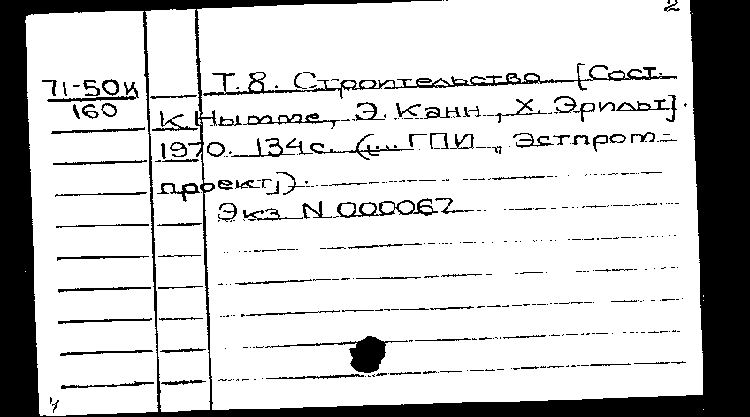 2
71-50к
160
Т.8. Строительство [Сост.
К Нымме, Э. Канн, Х. Эрильт].
1970. 134 с. (... ГПИ "Эстпром-
проект").
Экз N 000067